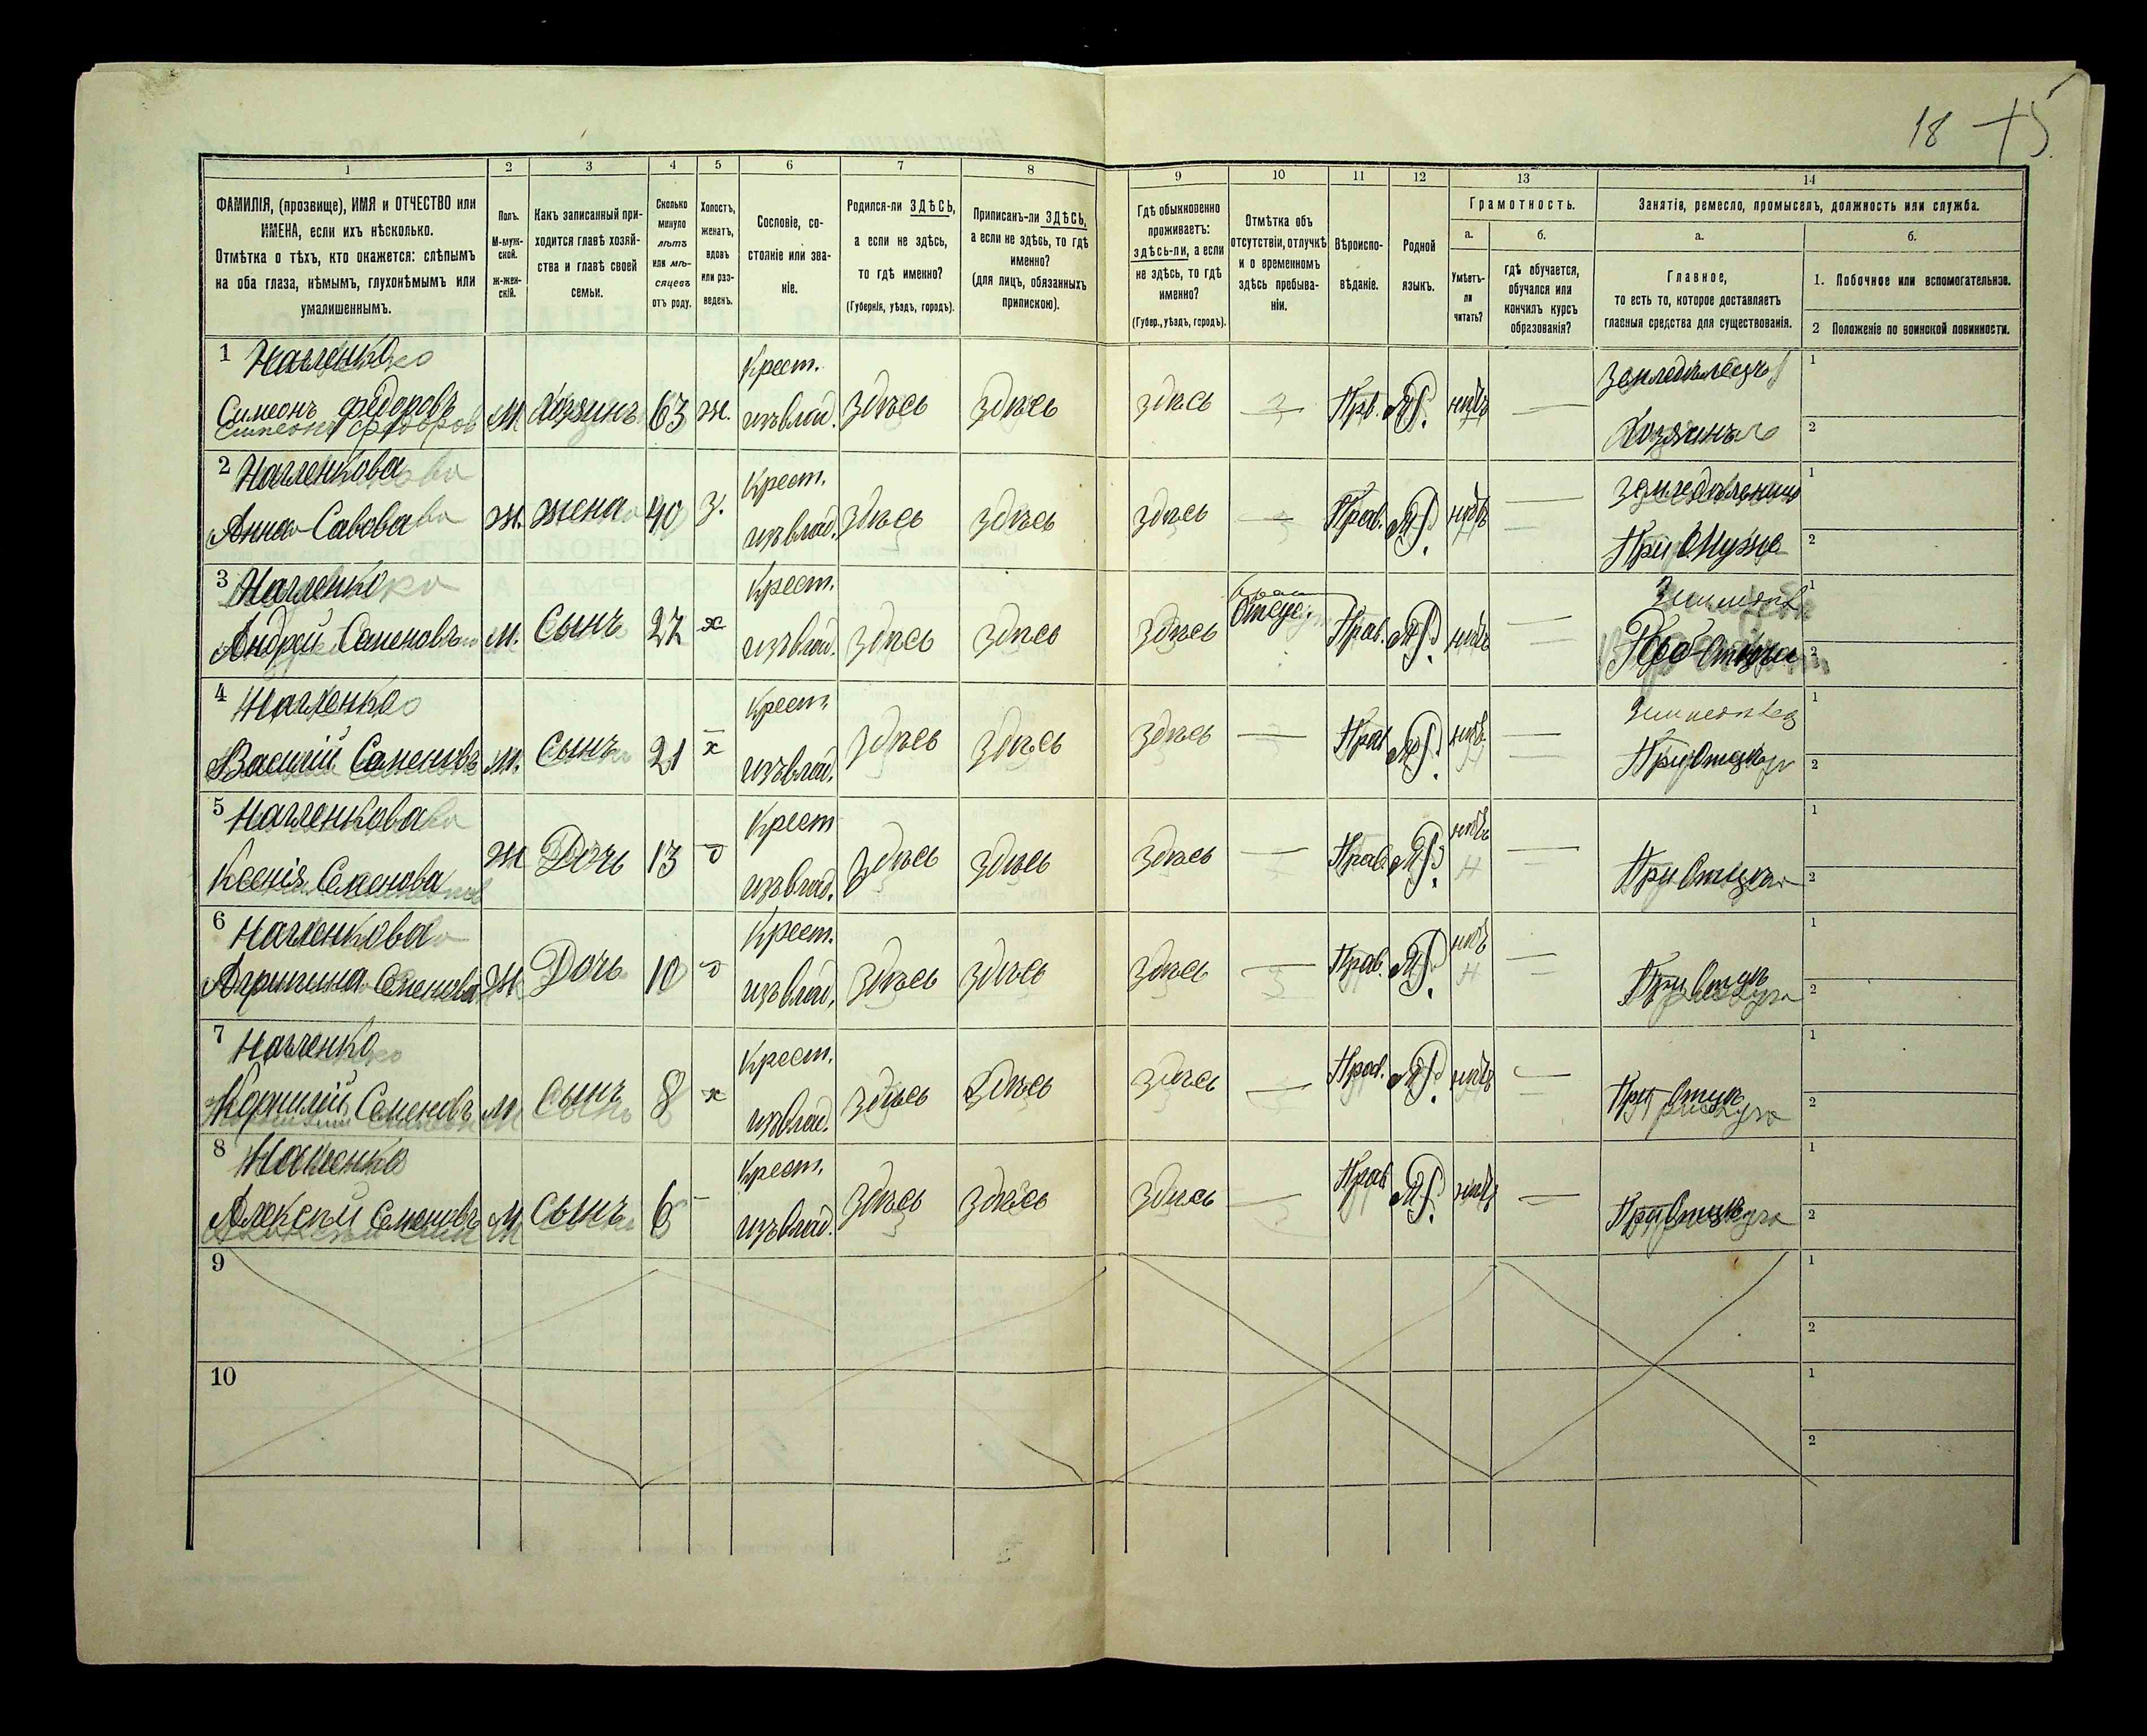 18 75
1 2 3 4 5 6 7 8 9 10 11 12 13 14
ФАМИЛІЯ, (прозвище), ИМЯ и ОТЧЕСТВО или
ИМЕНА, если ихъ нѣсколько.
Отмѣтка о тѣхъ, кто окажется: слѣпымъ
на оба глаза, нѣмымъ, глухонѣмымъ или
умалишеннымъ.
Полъ.
М-муж-
ской.
Ж-жен-
скій.
Какъ записанный при-
ходится главѣ хозяй-
ства и главѣ своей
семьи.
Сколько
минуло
лѣтъ
или мѣ-
сяцевъ
отъ роду.
Холостъ,
женатъ,
вдовъ
или раз-
веденъ.
Сословіе, со-
стояніе или зва-
ніе.
Родился-ли ЗДѢСЬ,
а если не здѣсь,
то гдѣ именно?
(Губернія, уѣздъ, городъ).
Приписанъ-ли ЗДѢСЬ,
а если не здѣсь, то гдѣ
именно?
(для лицъ, обязанныхъ
припискою).
Гдѣ обыкновенно
проживаетъ:
здѣсь-ли, а если
не здѣсь, то гдѣ
именно?
(Губер., уѣздъ, городъ).
Отмѣтка объ
отсутствіи, отлучкѣ
и о временномъ
здѣсь пребыва-
ніи.
Вѣроиспо-
вѣданіе.
Родной
языкъ.
Грамотность.
а.
Умѣетъ-
ли
читать?
б.
гдѣ обучается,
обучался или
кончилъ курсъ
образованія?
Занятія, ремесло, промыселъ, должность или служба.
а.
Главное,
то есть то, которое доставляетъ
главныя средства для существованія.
б.
1. Побочное или вспомогательное.
2 Положеніе по воинской повинности.
1
Симеонъ Федоровъ М Хозяинъ 63 ж. Крест. изъ влад. здѣсь здѣсь здѣсь — Прв. нѣтъ — Земледѣлецъ Хозяинъ 1 2
2
Анна Савова ж. жена 40 з. Крест. изъ влад. здѣсь здѣсь здѣсь — Прав. нѣтъ — При Мужѣ 1 2
3
Андрей Семеновъ м. Сынъ 27 х Крест. изъ влад. здѣсь здѣсь здѣсь Отсус. Прав. нѣтъ — 1 2
4
Василій Семеновъ м. сынъ 21 х Крест. изъ влад. здѣсь здѣсь здѣсь — Прав нѣтъ — При Отцѣ 1 2
5
Ксенія Семенова Ж Дочь 13 Крест изъ влад. здѣсь здѣсь здѣсь — Прав. нѣтъ — При Отцѣ 1 2
6
Семенова Ж Дочь 10 Крест. изъ влад. здѣсь здѣсь здѣсь — Прав. нѣтъ — При Отцѣ 1 2
7
Семеновъ М Сынъ 8 х Крест. изъ влад. здѣсь здѣсь здѣсь — Прав. нѣтъ — При Отцѣ 1 2
8
Алексѣй Семеновъ М сынъ 6 — Крест. изъ влад. здѣсь здѣсь здѣсь — Прав нѣтъ — При Отцѣ 1 2
9 1 2
10 1 2